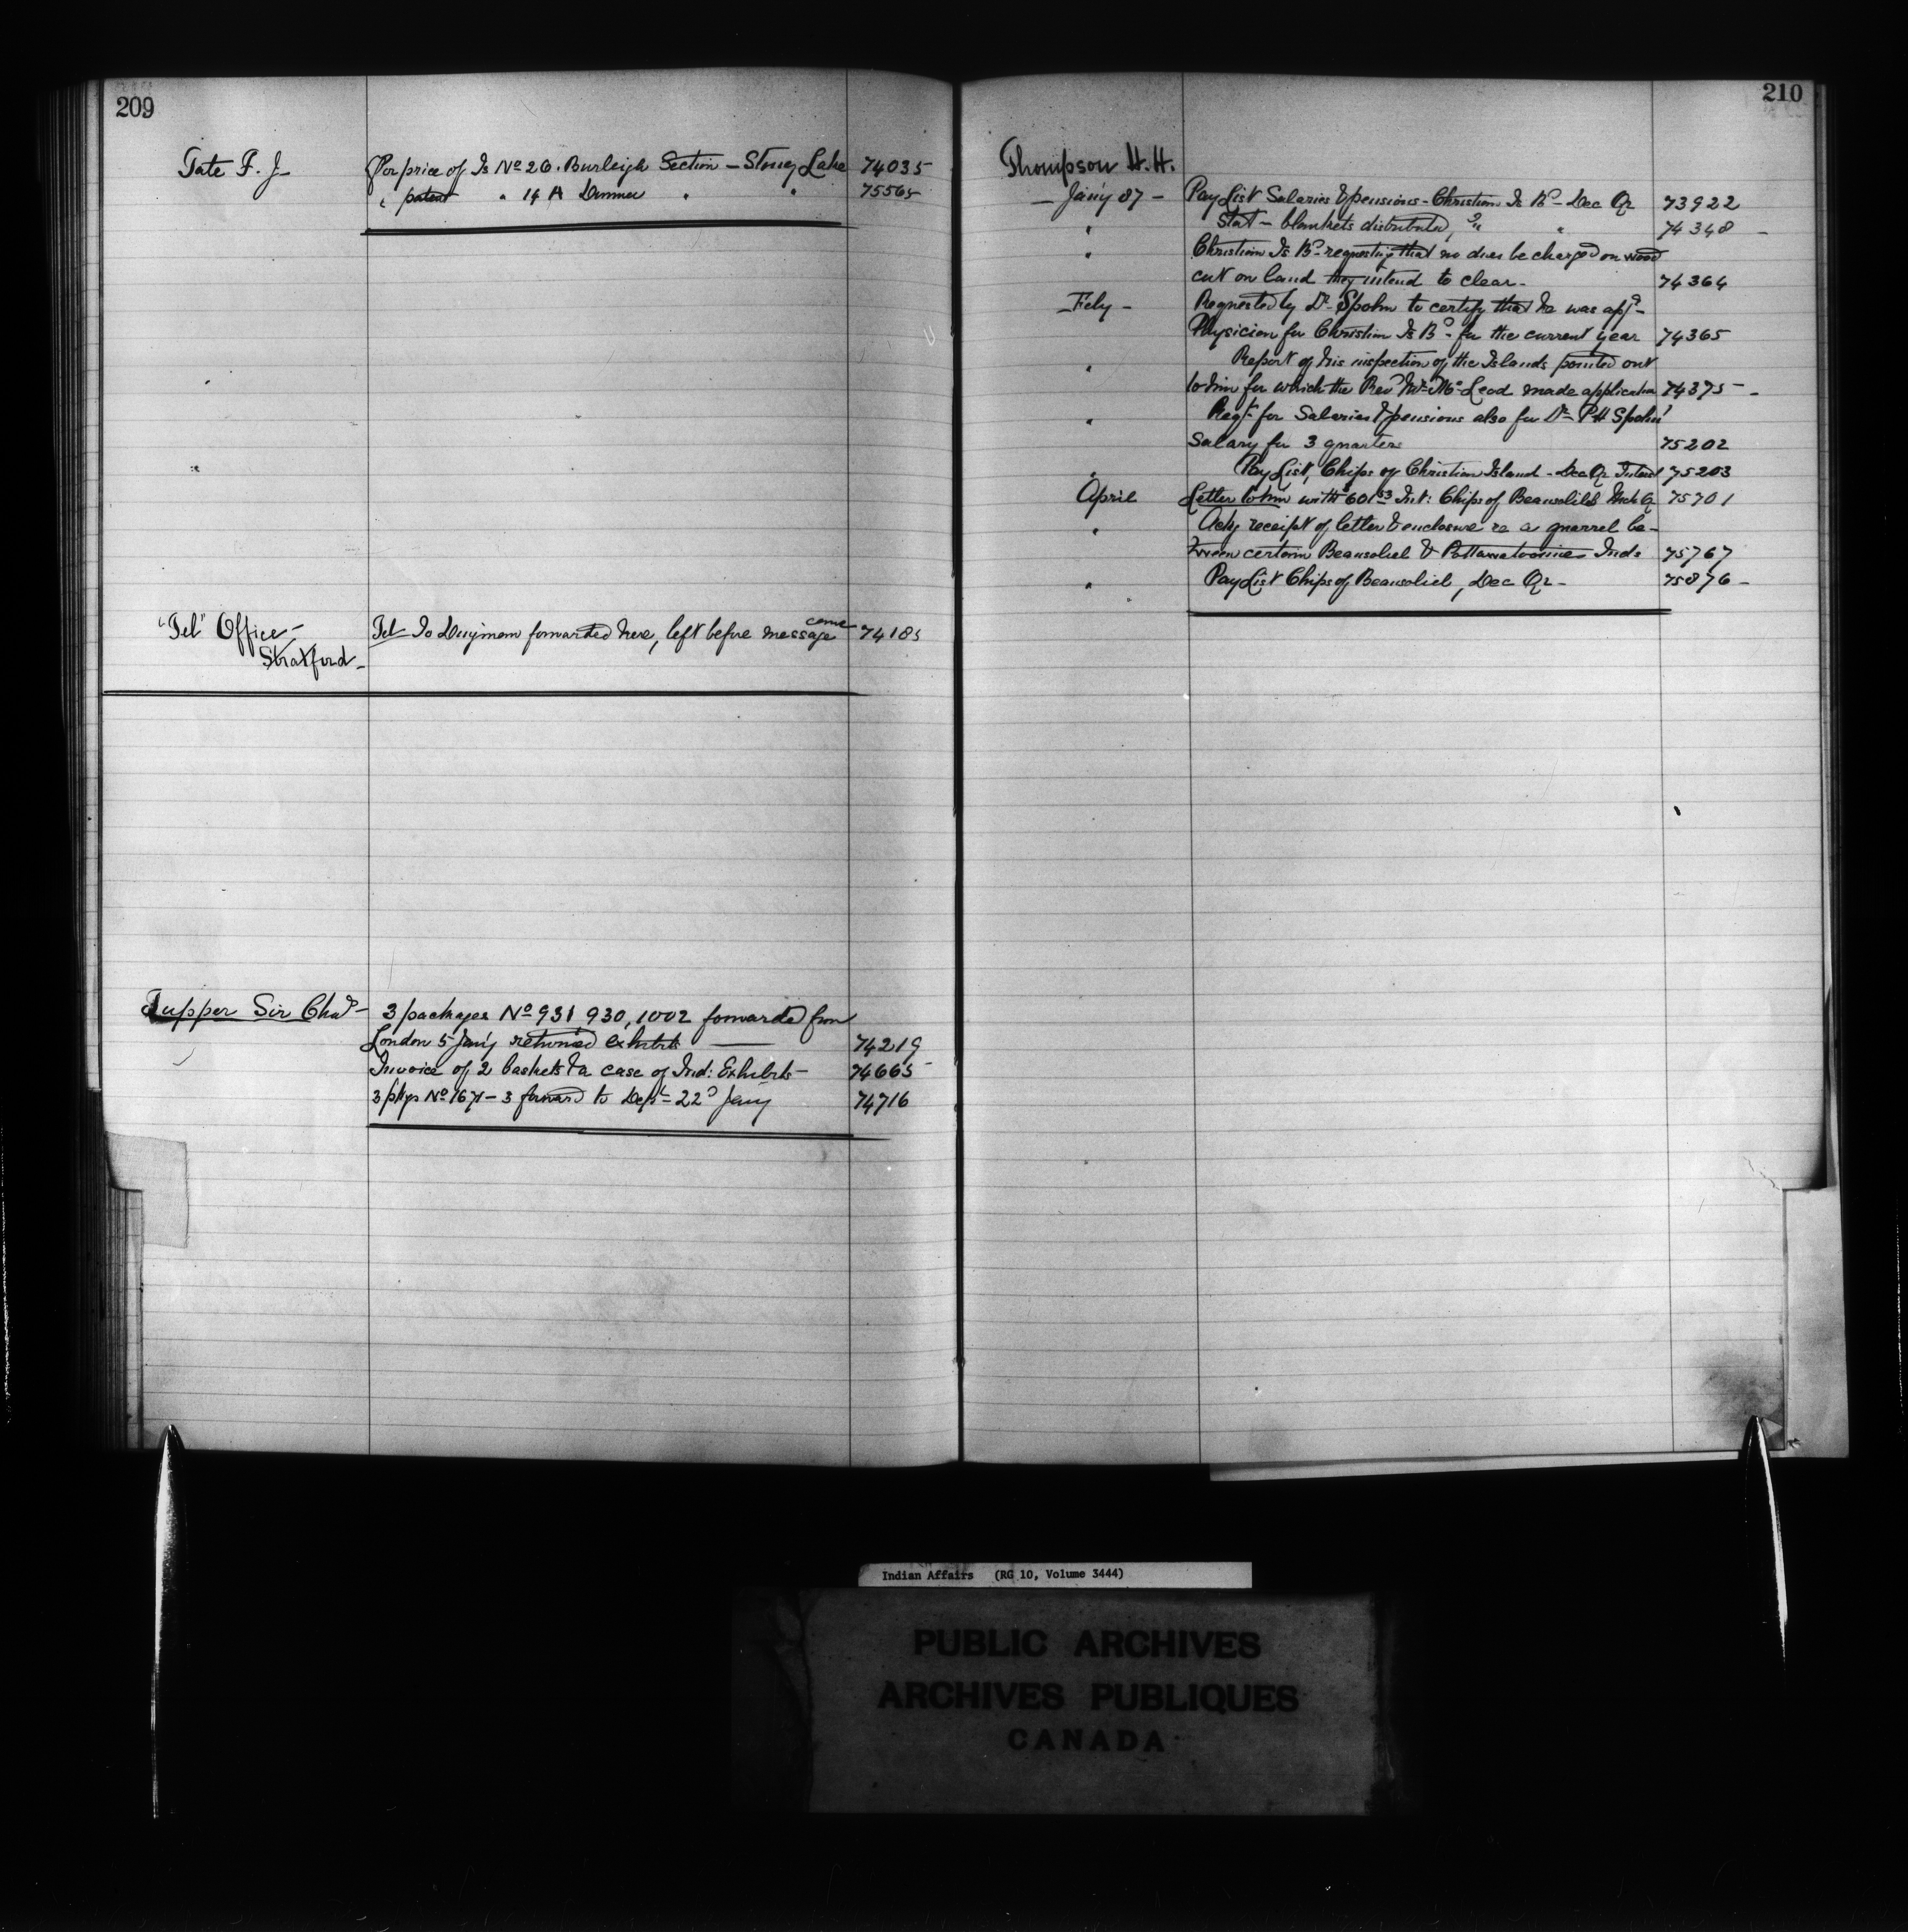 209
Tate F. J. For price of Is No 26. Burleigh Section - Stoney Lake 74035
" patent " 14 A Dummer " " 75565
"Tel" Office - Tel - To Dingman forwarded here, left before message came 74185
Stratford -
Tupper Sir Chas - 3 packages No 931 930, 1002 forwarded from
London 5 Jan'y returned exhibits — 74219
Invoice of 2 baskets & a case of Ind: Exhibits - 74665
3 pkgs No 1671 - 3 forward to Dept - 22d Jany 74716
210
Thompson H. H.
- Jan'y 87 - Pay List Salaries & pensions - Christian Is Bd - Dec Qr 73922
" Stat - blankets distributed, " " 74348 -
" Christian Is Bd - requesting that no dues be charged on wood
cut on land they intend to clear - 74364
- Feby - Requested by Dr Spohn to certify that he was appd -
Physician for Christian Is Bd - for the current year 74365
" Report of his inspection of the Islands pointed out
to him for which the Revd Mr McLeod made application 74375 -
" Reqt for Salaries & pensions also for Dr P H Spohn'
Salary for 3 quarters 75202
" Pay List, Chips of Christian Island - Dec Qr 75203
April Letter to him with $601 53 Int: Chips of Beausoliel Mch Qr 75701
" Ackg receipt of letter & enclosure re a quarrel be-
tween certain Beausoliel & Pottawatomie Inds 75767
" Pay List Chips of Beausoliel, Dec Qr - 75876 -
Indian Affairs (RG 10, Volume 3444)
PUBLIC ARCHIVES
ARCHIVES PUBLIQUES
CANADA